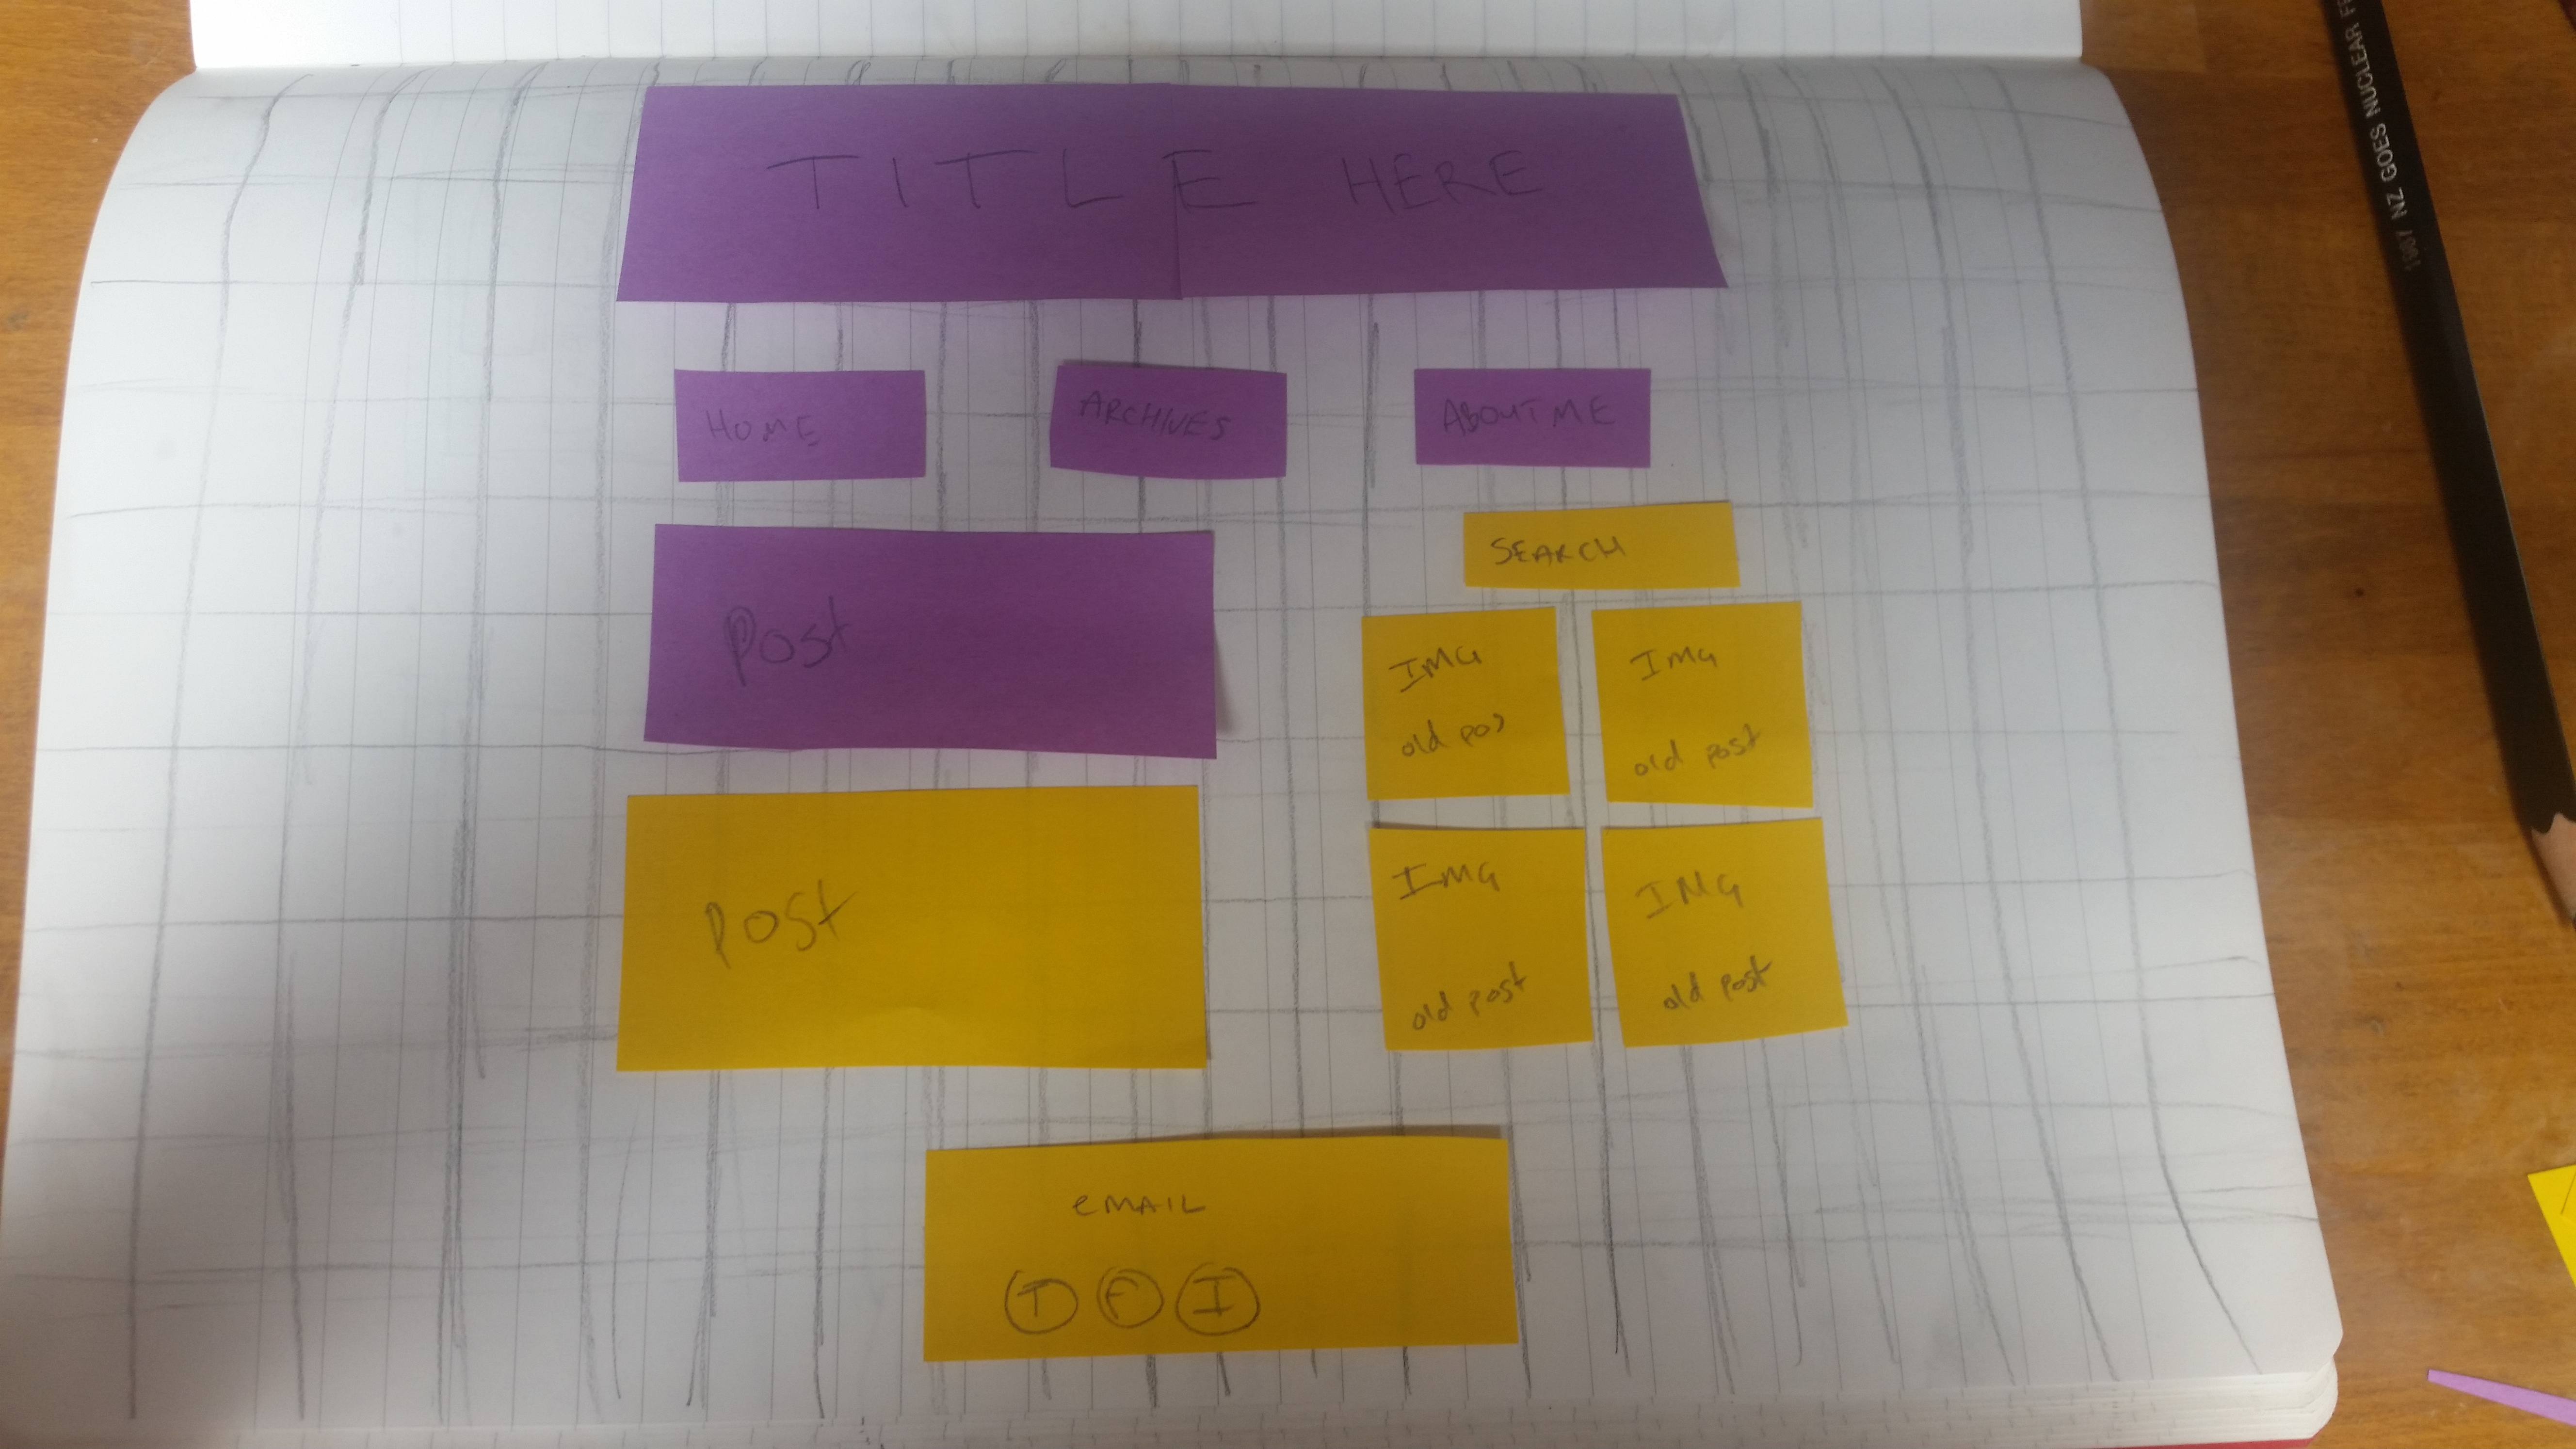 TITLE HERE
HOME
ARCHIVES
ABOUT ME
Post
SEARCH
IMG
old pos
IMG
old post
Post
IMG
old post
IMG
old post
eMAIL
T F I
1987 NZ GOES NUCLEAR FR